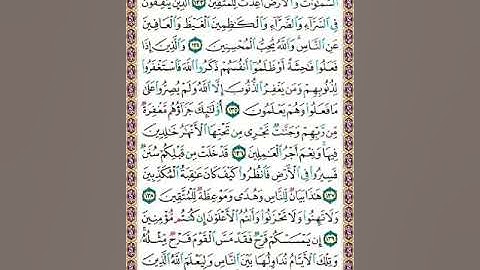 السَّمَٰوَٰتُ وَالْأَرْضُ أُعِدَّتْ لِلْمُتَّقِينَ ١٣٣ الَّذِينَ يُنفِقُونَ
فِي السَّرَّاءِ وَالضَّرَّاءِ وَالْكَٰظِمِينَ الْغَيْظَ وَالْعَافِينَ
عَنِ النَّاسِ وَاللَّهُ يُحِبُّ الْمُحْسِنِينَ ١٣٤ وَالَّذِينَ إِذَا
فَعَلُوا فَٰحِشَةً أَوْ ظَلَمُوا أَنفُسَهُمْ ذَكَرُوا اللَّهَ فَاسْتَغْفَرُوا
لِذُنُوبِهِمْ وَمَن يَغْفِرُ الذُّنُوبَ إِلَّا اللَّهُ وَلَمْ يُصِرُّوا عَلَىٰ
مَا فَعَلُوا وَهُمْ يَعْلَمُونَ ١٣٥ أُولَٰئِكَ جَزَاؤُهُم مَّغْفِرَةٌ
مِّن رَّبِّهِمْ وَجَنَّٰتٌ تَجْرِي مِن تَحْتِهَا الْأَنْهَٰرُ خَٰلِدِينَ
فِيهَا وَنِعْمَ أَجْرُ الْعَٰمِلِينَ ١٣٦ قَدْ خَلَتْ مِن قَبْلِكُمْ سُنَنٌ
فَسِيرُوا فِي الْأَرْضِ فَانظُرُوا كَيْفَ كَانَ عَٰقِبَةُ الْمُكَذِّبِينَ
١٣٧ هَٰذَا بَيَانٌ لِّلنَّاسِ وَهُدًى وَمَوْعِظَةٌ لِّلْمُتَّقِينَ ١٣٨
وَلَا تَهِنُوا وَلَا تَحْزَنُوا وَأَنتُمُ الْأَعْلَوْنَ إِن كُنتُم مُّؤْمِنِينَ
١٣٩ إِن يَمْسَسْكُمْ قَرْحٌ فَقَدْ مَسَّ الْقَوْمَ قَرْحٌ مِّثْلُهُ
وَتِلْكَ الْأَيَّامُ نُدَاوِلُهَا بَيْنَ النَّاسِ وَلِيَعْلَمَ اللَّهُ الَّذِينَ